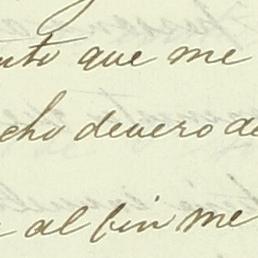 nto que me
cho devero de
al fin me